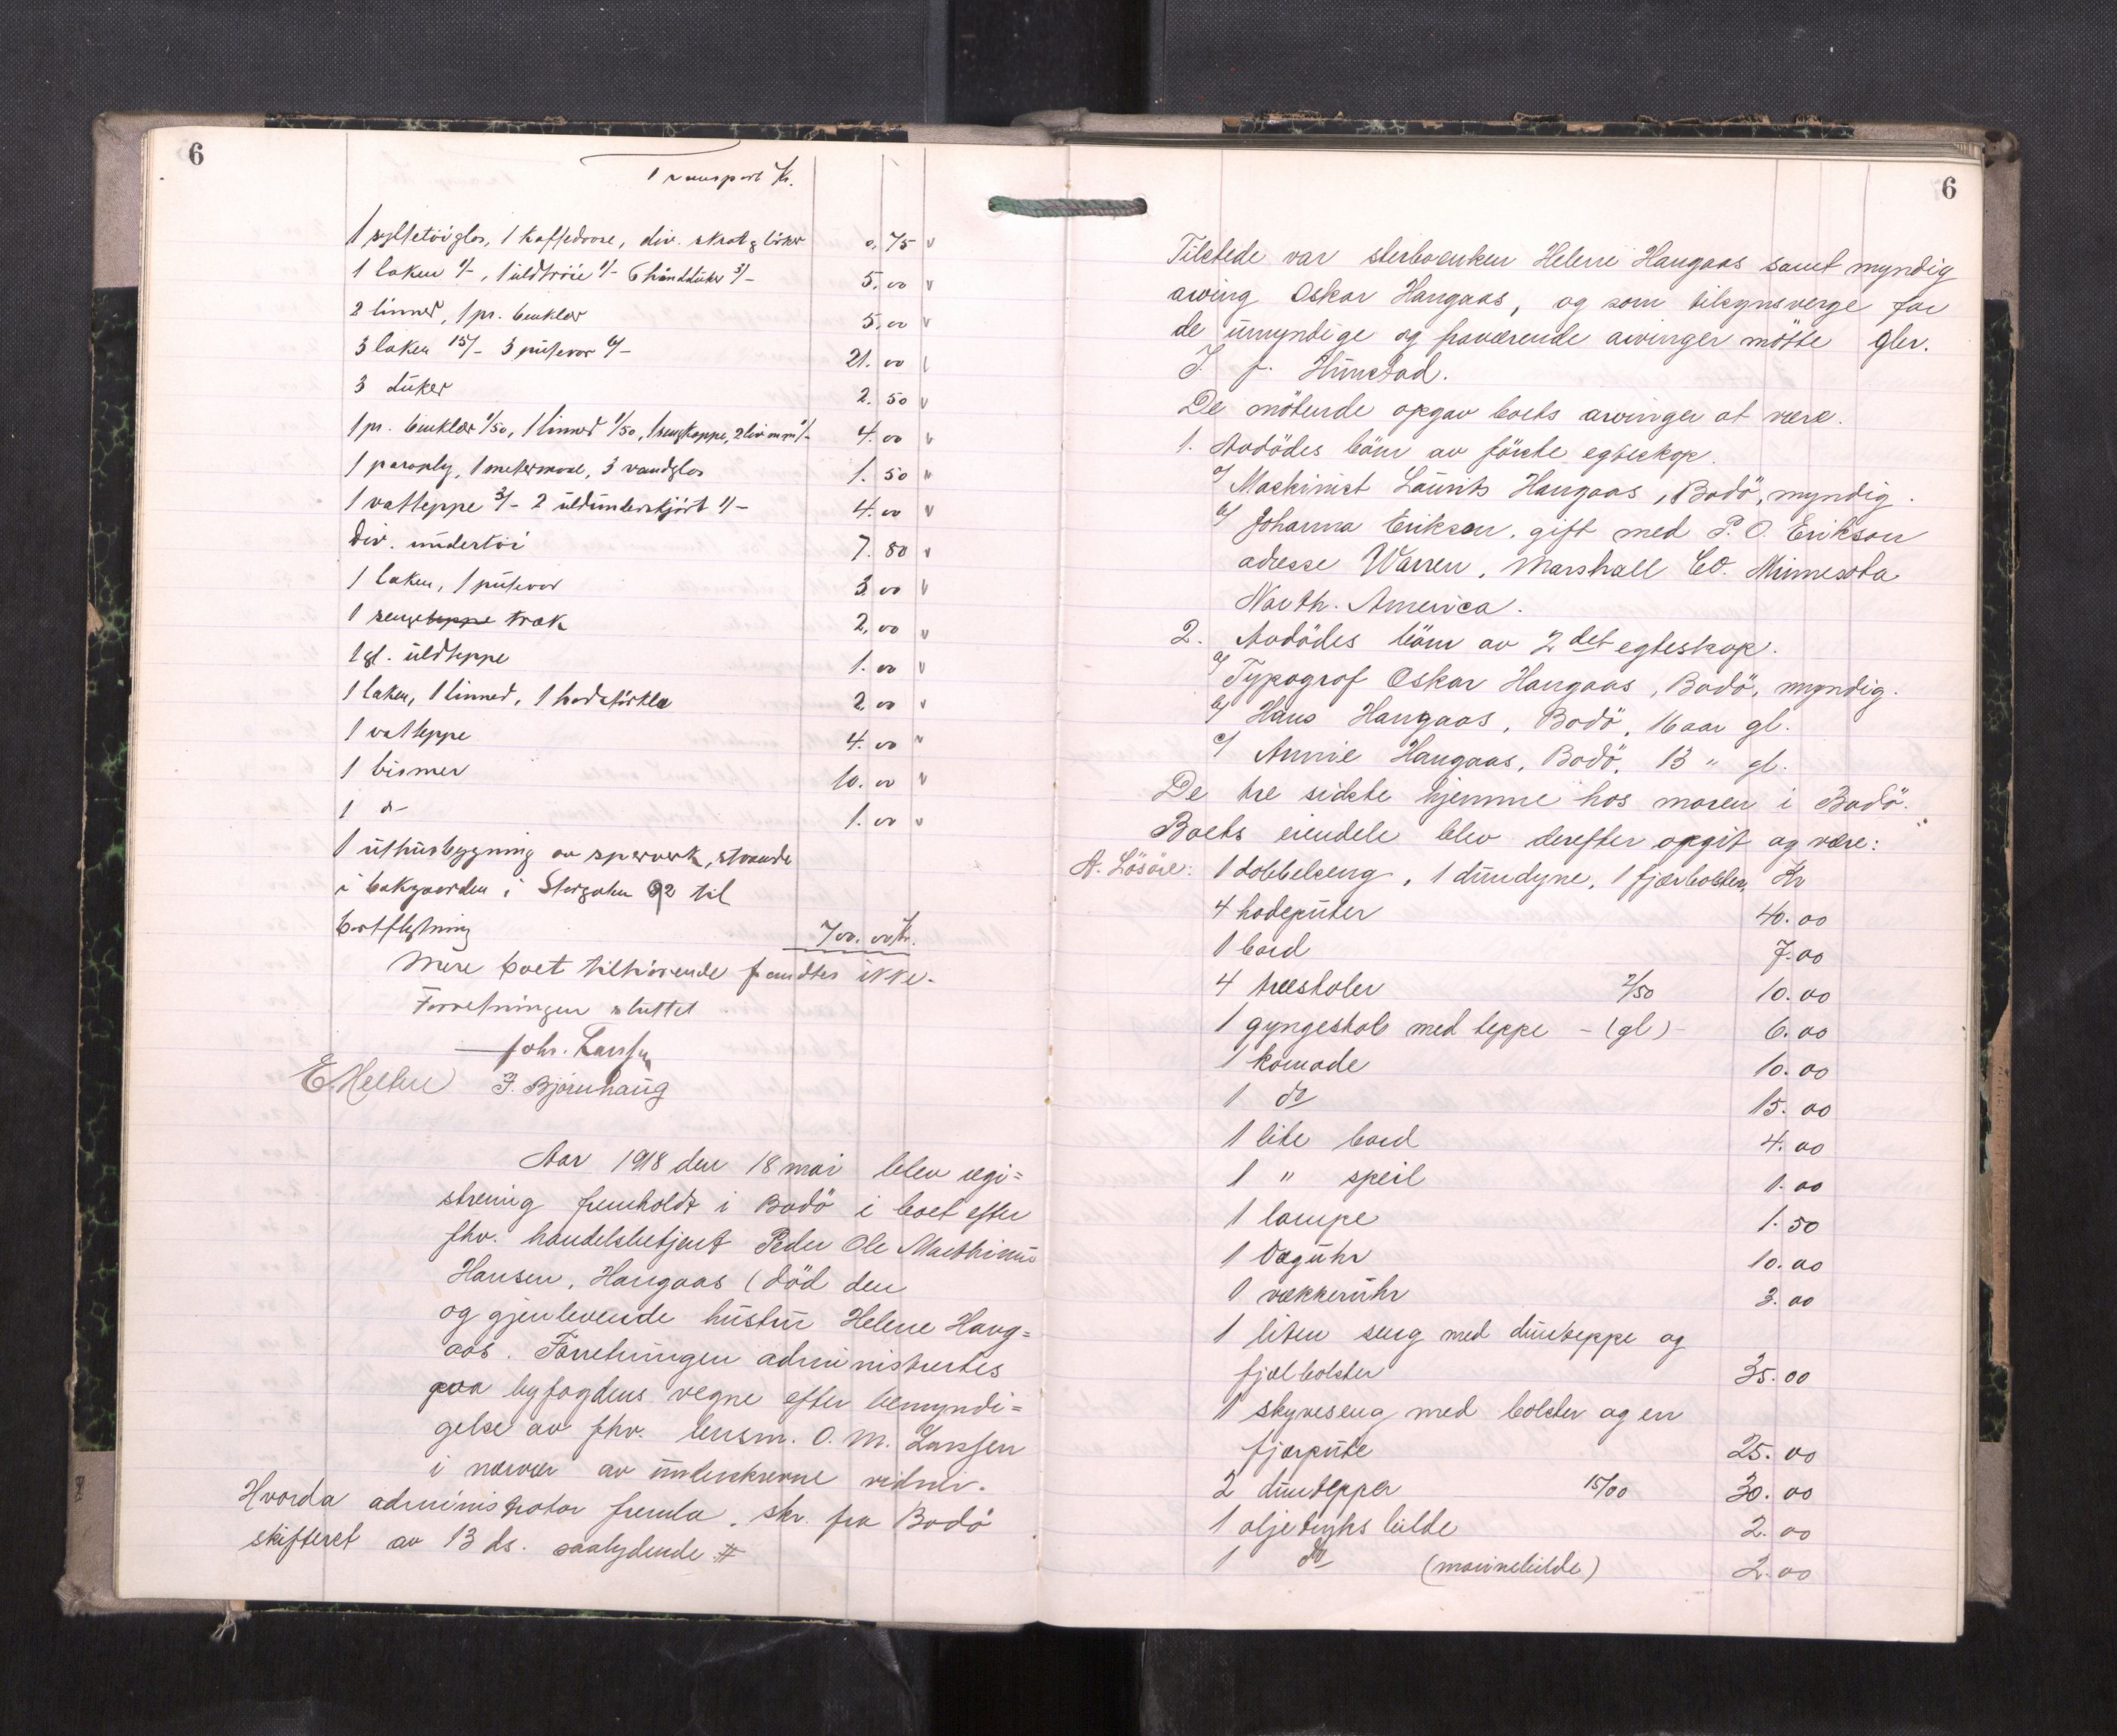 6
Transport Kr.
1 syltetöiglas, 1 kaffedaase, div. skrot & böker 0,75
1 laken 1/-, 1 uldtröie 1/- 6 hånddüker 3/- 5.00
2 linned, 1 pr. benklær 5.00
3 laken 15/- 3 pütevar 6/- 21.00
3 düker 2.50
1 pr. benklær 1/50, 1 linned 1/50, 1 sengkappe, 2 liv m m 1/- 4.00
1 paraply, 1 , 3 vandglas 1.50
1 vatteppe 2/- 2 üldünderskjört 1/- 4.00
Div. ündertöi 7.80
1 laken, 1 pütevar 3.00
1 sengeteppe træk 2,00
1 gl. üldteppe 1.00
1 laken, 1 linned, 1 2.00
1 vatteppe 4.00
1 bismer 10.00
1 do 1.00
1 üthüsbygning av sperverk, staaende
i bakgaarden i Storgaten 92 til
bortflytning 700.00 Kr.
Mere boet tilhörende fandtes ikke.
Forretningen sluttet
Johs. Larssen
E. J. Björnhaüg
Aar 1918 den 18 mai blev regi=
strering fremholdt i Bodö i boet efter
fhv. handelsbetjent Peder Ole Marthinüs
Hansen, Haugaas (död den
og gjenlevende hüstrü Helene Haug=
aas. Forretningen administrertes
paa byfogdens vegne efter bemyndi=
gelse av fhv. lensm. O. M. Larssen
i nærvær av ünderskrevne vidner.
Hvorda administrator fremla skr. fra Bodö
skifteret av 13 ds. saalydende #
6
Tilstede var sterboenken Helene Haugaas samt myndig
arving Oskar Haugaas, og som tilsynsverge for
de ümyndige og fraværende arvinger mötte gbr.
J. J. Hünstad.
De mötende opgav boets arvinger at være.
1. Avdödes börn av förste egteskap.
a/ Maskinist Laürits Haugaas, Bodö, myndig.
b/ Johanna Erikson, gift med P. O. Erikson
adresse Warren, Marshall CO. Minnesota
North. America.
2. Avdödes börn av 2det egteskap.
a/ Typograf Oskar Haugaas, Bodö, myndig.
b/ Hans Haugaas, Bodö, 16 aar gl.
c/ Annie Haugaas, Bodö, 13 " gl.
De tre sidste hjemme hos moren i Bodö.
Boets eiendele blev derefter opgit og være:
A. Lösöre: 1 dobbelseng, 1 dündyne, 1 fjærbolster, Kr
4 hodepüter 40.00
1 bord 7.00
4 træstoler 2/50 10.00
1 gyngestol med teppe - (gl) - 6.00
1 komode 10.00
1 do 15.00
1 lite bord 4.00
1 " speil 1.00
1 lampe 1.50
1 Vægühr 10.00
1 vækkerühr 3.00
1 liten seng med dünteppe og
fjælbolster 35.00
1 skyveseng med bolster og en
fjærpüte 25.00
2 düntepper 15/00 30.00
1 oljetryksbilde 2.00
1 do (marinebilde) 2.00